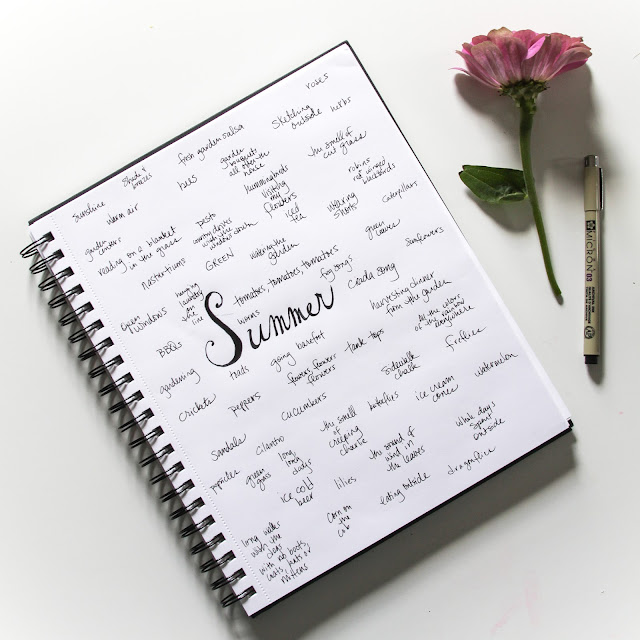 roses
sketching
outside
herbs
fresh garden salsa
the smell of
cut grass
garden
bouquets
all over the
house
shade &
breezes
bees
hummingbirds
visiting
my
flowers
robins
red winged
blackbirds
sunshine
warm air
iced
tea
wearing
shorts
caterpillars
pesto
country drives
with the
windows down
garden
clover
reading on a blanket
in the grass
GREEN
watering the
garden
green
leaves
sunflowers
nasturtiums
hanging
laundry
on
the
line
tomatoes, tomatoes, tomatoes
frog songs
cicada song
open
windows
worms
Summer
harvesting dinner
from the garden
all the colors
of the rainbow
everywhere
BBQs
toads
going barefoot
tank tops
fireflies
gardening
flowers flowers
flowers
sidewalk
chalk
watermelon
crickets
peppers
cucumbers
butterflies
ice cream
cones
sandals
cilantro
the smell
of
creeping
charlie
the sound of
wind in
the leaves
whole days
spent
outside
popsicles
green
grass
long
days
ice cold
beer
lilies
eating outside
dragonflies
corn on
the
cob
long walks
with the
dogs
with no boots
coats, hats or
mittens
MICRON 03